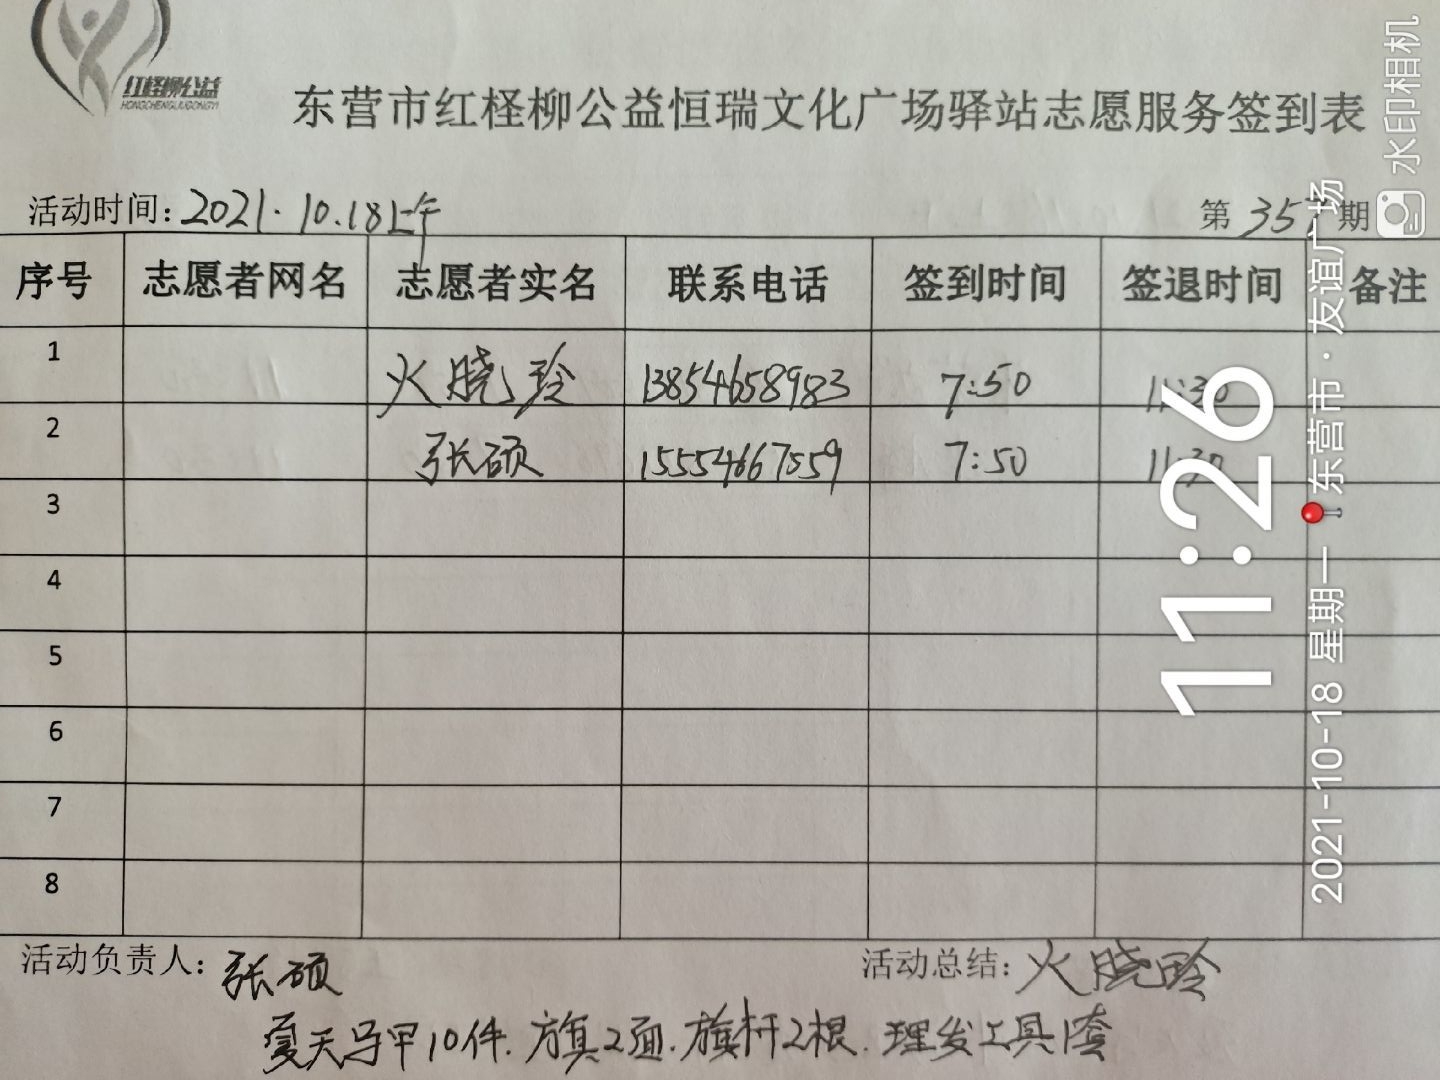 红柽柳公益
HONGCHENGLIUGONGYI
东营市红柽柳公益恒瑞文化广场驿站志愿服务签到表
活动时间：2021.10.18上午 第 357 期
序号 志愿者网名 志愿者实名 联系电话 签到时间 签退时间 备注
1 火晓玲 13854658983 7:50 11:30
2 张硕 15554667559 7:50 11:30
3
4
5
6
7
8
活动负责人：张硕 活动总结：火晓玲
夏天马甲10件.方旗2面.旗杆2根.理发工具1套
水印相机
11:26
2021-10-18 星期一 东营市·友谊广场